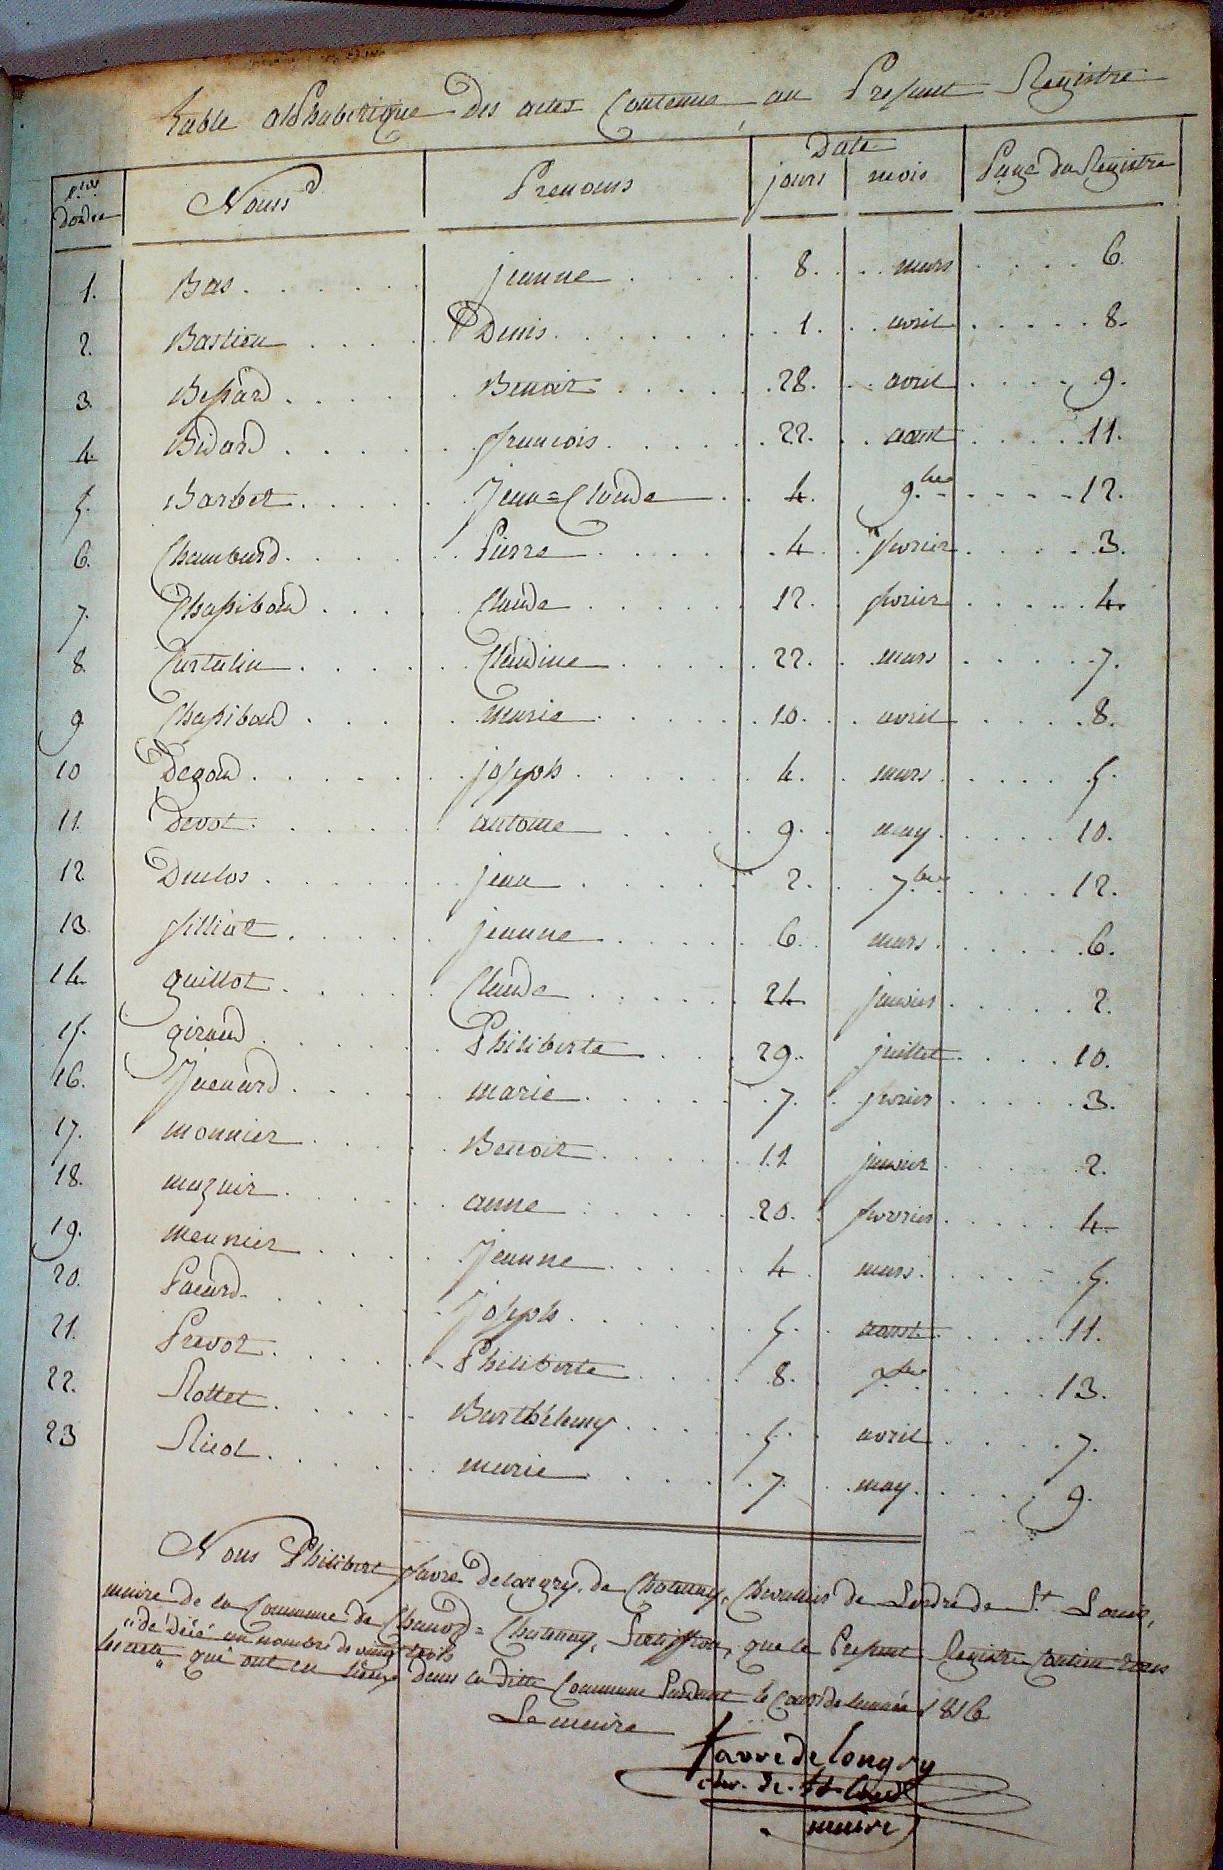 Table alphabetique Des actes Contenus au Present Registre
N.ros Dordre Noms Prenoms Date jours mois Page du Registre
1. Bas jeanne 8. mars 6.
2. Bastien Denis 1. avril 8.
3. Bessard Benoit 28. avril 9.
4. Bidard françois 22. aout 11.
5. Barbet Jean=Claude 4. 9.bre 12.
6. Chambard Pierre 4 fevrier 3.
7. Chassiboud Claude 12. fevrier 4.
8. Curtelin Claudine 22. mars 7.
9 Chassiboud marie 10. avril 8.
10 Degoud joseph 4. mars 5.
11. Devot antoine 9. may 10.
12 Duclos jean 2. 7.bre 12.
13. filliat jeanne 6. mars 6.
14. guillot Claude 24 janvier 2.
15. giroud Philiberte 29. juillet 10.
16. Juenard marie 7. fevrier 3.
17. monnier Benoit 11 janvier 2.
18. mazuir anne 20. fevrier 4
19. meunier Jeanne 4 mars 5.
20. Pacard Joseph 5. aout 11.
21. Prevot Philiberte 8. xbre 13.
22. Rottet Barthelemy 5. avril 7.
23 Ricol marie 7. may 9.
Nous Philibert favre delongry, de Chatenay, Chevallier de Lordre de St Louis,
maire de la Commune de Chanoz=Chatenay, que le Present Registre Contien tous
les acte de décé au nombre de vingt trois
qui ont eu dans la ditte Commune Pendant le Cour de lannée 1816
Le maire
favre de longry
chr. de st Louis
maire